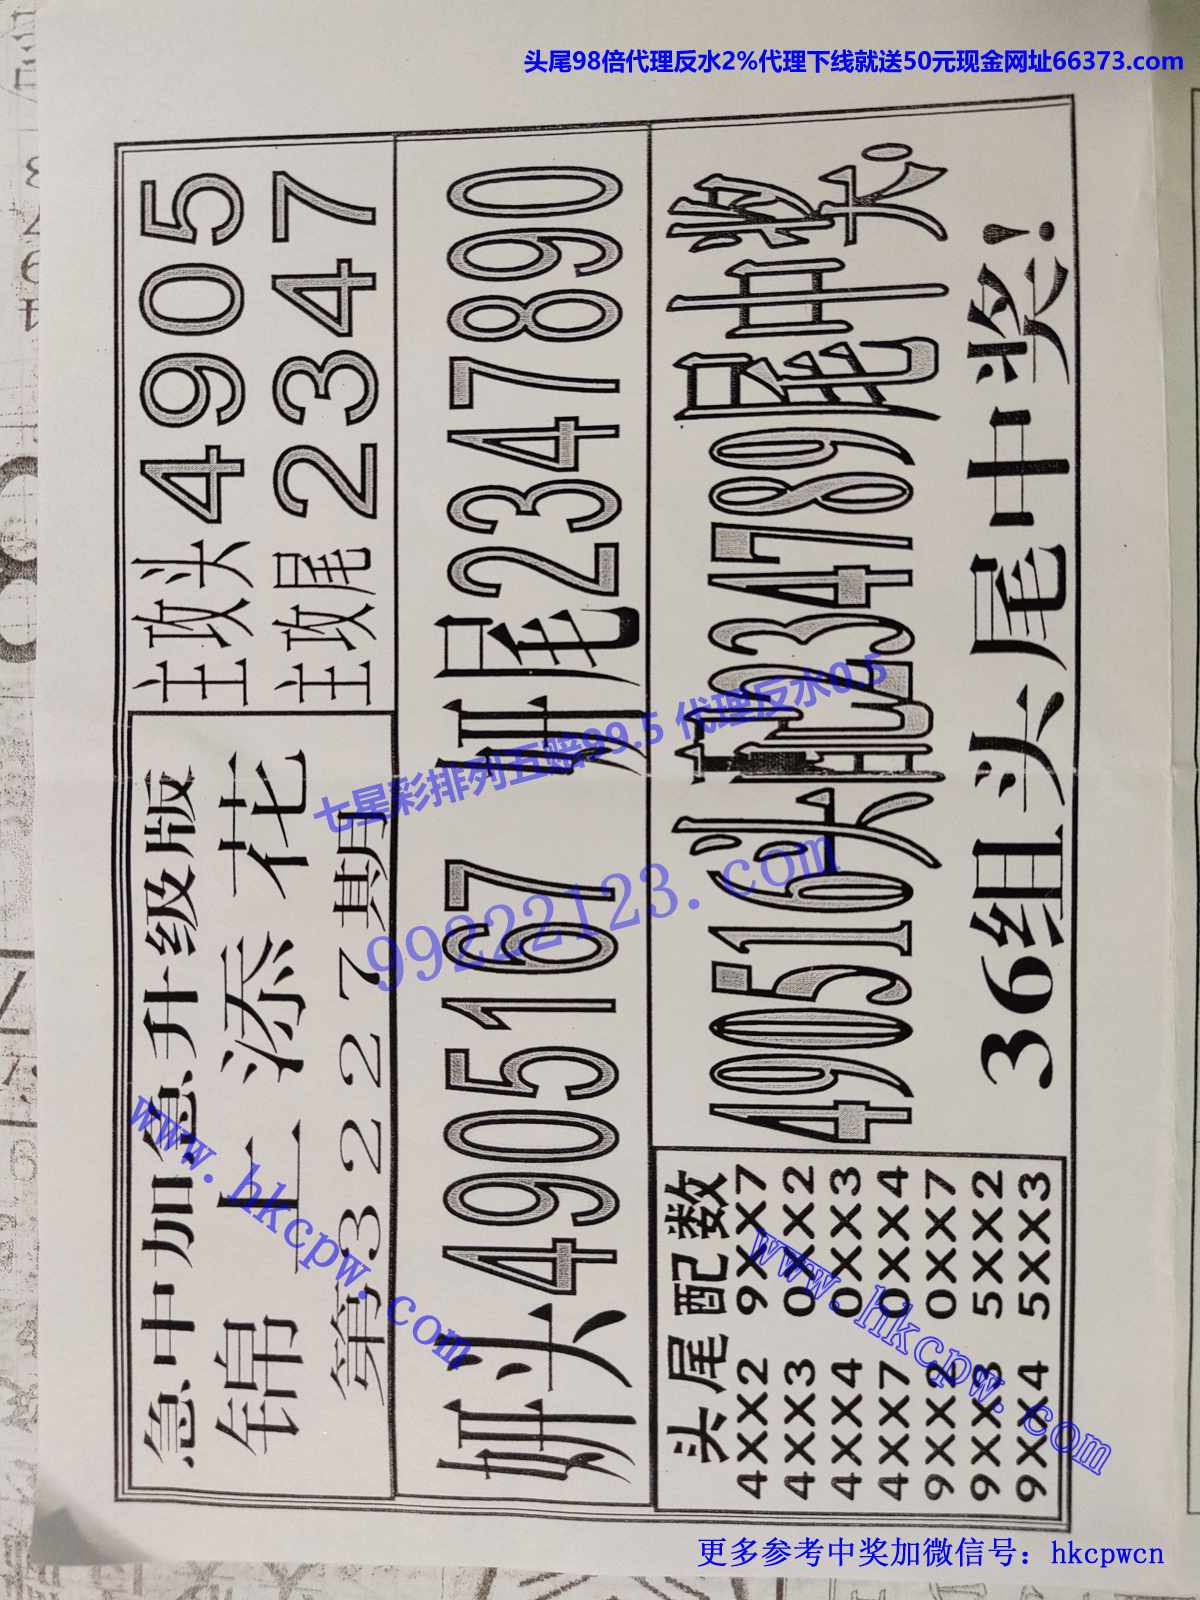 头尾98倍代理反水2%代理下线就送50元现金网址66373.com
急中加急升级版
锦上添花
第3227期
主攻头4905
主攻尾2347
妍头4905167 妍尾2347890
头尾配数
4XX2 9XX7
4XX3 0XX2
4XX4 0XX3
4XX7 0XX4
9XX2 0XX7
9XX3 5XX2
9XX4 5XX3
490516头配234789尾中奖
大。
36组头尾中奖!
七星彩排列五赔99.5 代理反水0.5
99222123.com
www.hkcpw.com
www.hkcpw.com
更多参考中奖加微信号：hkcpwcn